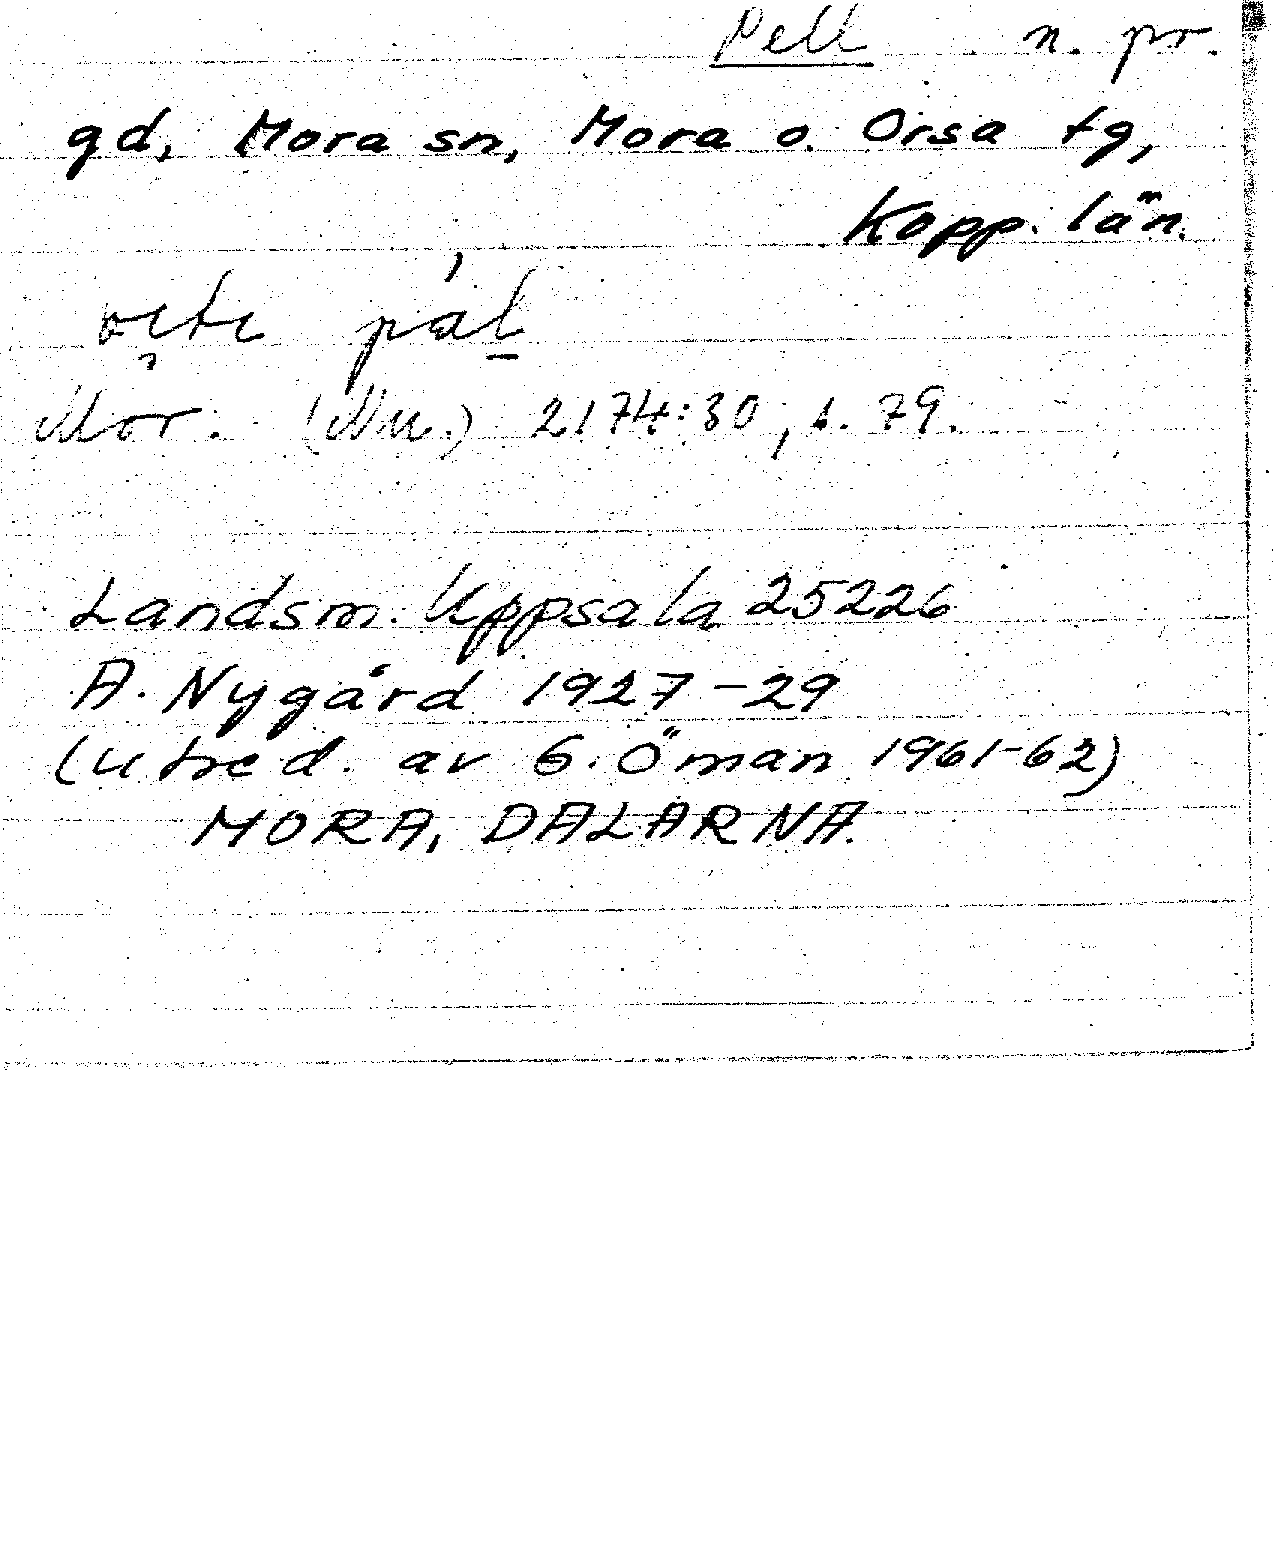 Pell n. pr.
gd, Mora sn, Mora o. Orsa tg,
Kopp. län.
Mor. (Nu.) 2174:30, s. 79.
Landsm. Uppsala 25226
A. Nygård 1927-29
(utred. av G. Öman 1961-62)
MORA, DALARNA.